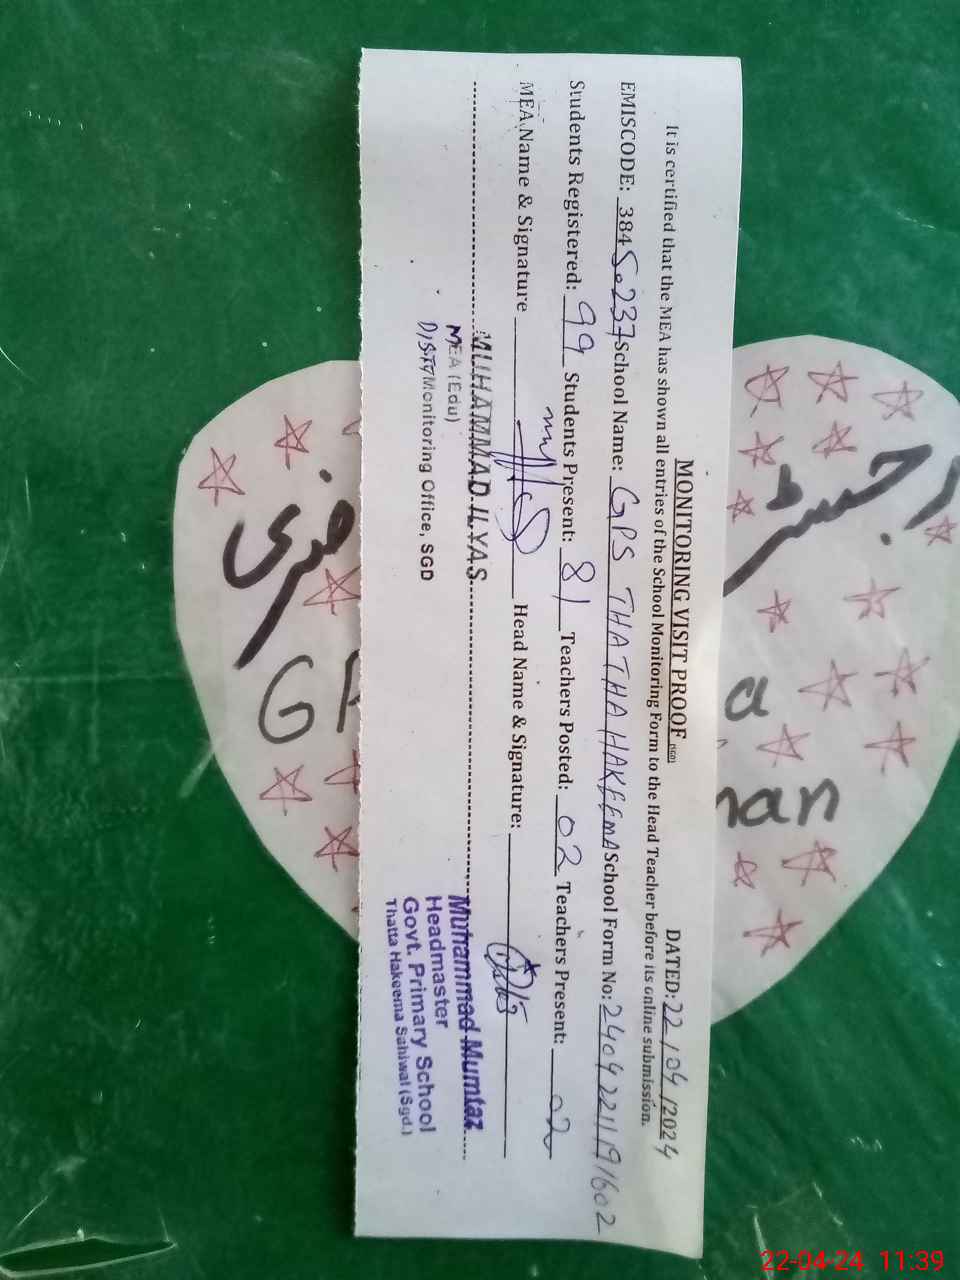 MONITORING VISIT PROOF (SGD) DATED: 22/04/2024
It is certified that the MEA has shown all entries of the School Monitoring Form to the Head Teacher before its online submission.
EMISCODE: 38450237 School Name: GPS THATHA HAKEEMA School Form No: 2404221191602
Students Registered: 99 Students Present: 81 Teachers Posted: 02 Teachers Present: 02
MEA Name & Signature Head Name & Signature:
MUHAMMAD ILYAS
MEA (Edu)
DISTT Monitoring Office, SGD
Muhammad Mumtaz
Headmaster
Govt. Primary School
Thatta Hakeema Sahiwal (Sgd.)
رجسٹر
ضری
a
man
G
22-04-24 11:39